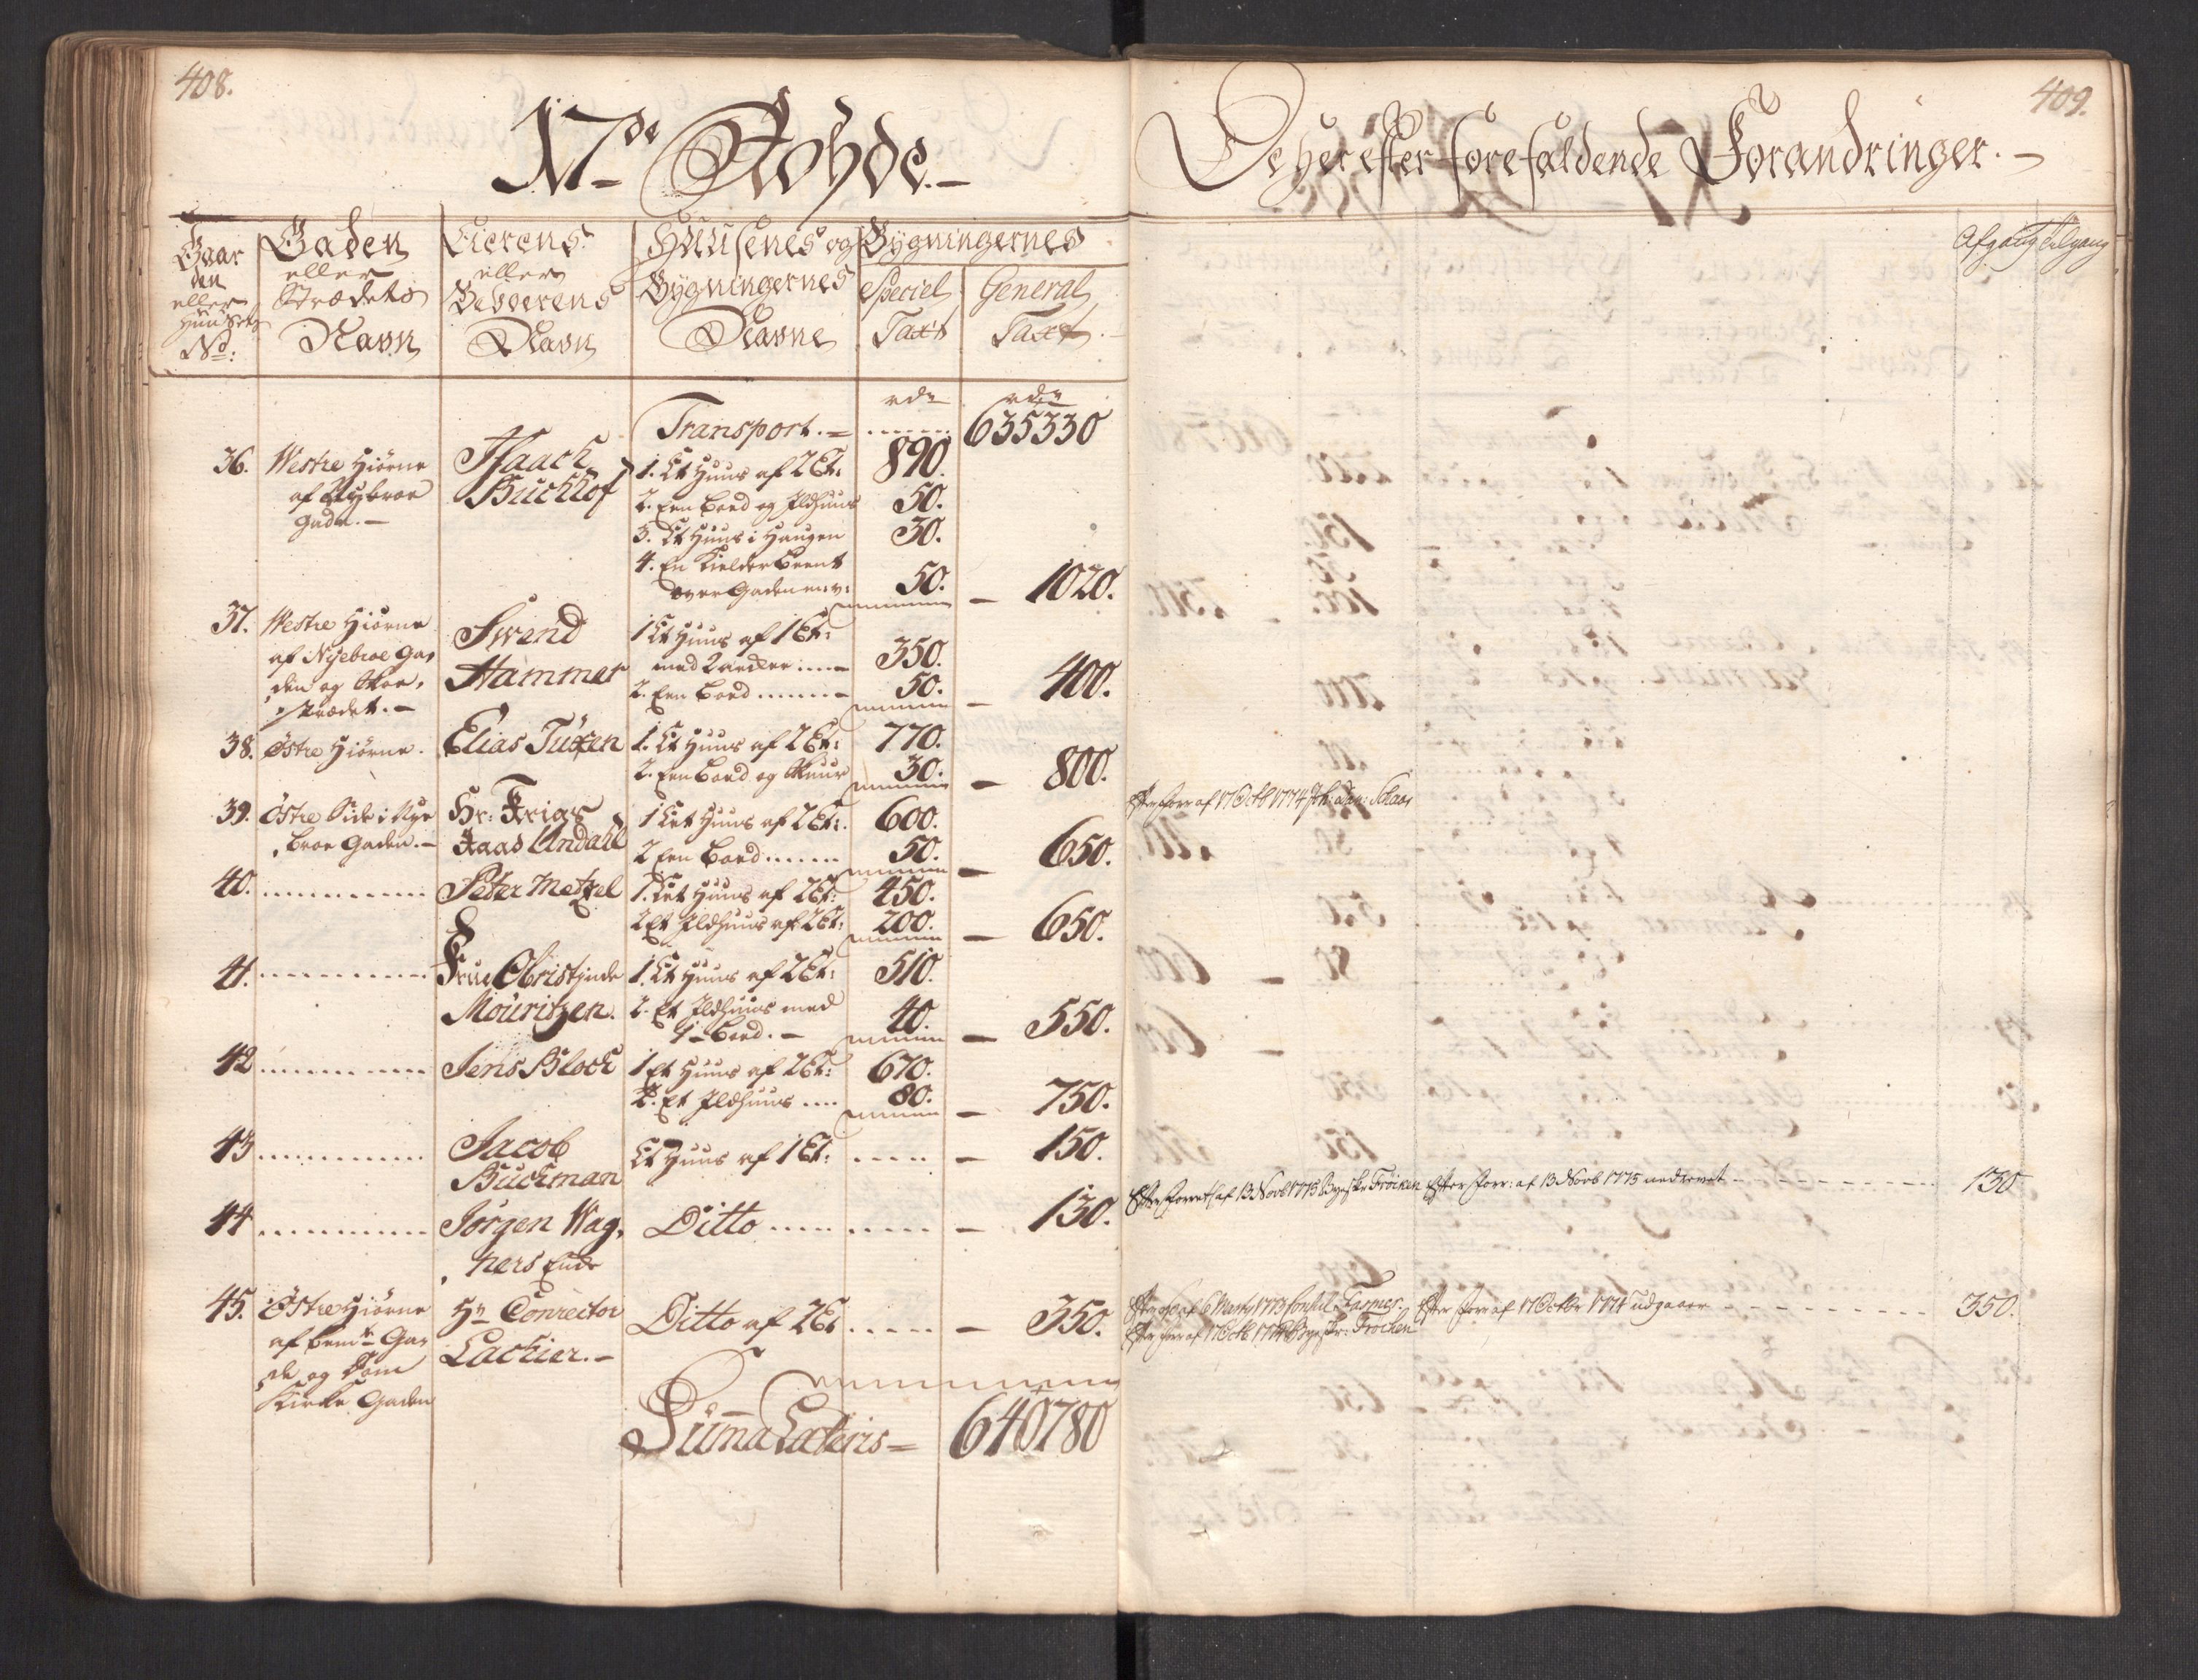 408.
17de Rohde.
Gaarden eller Huusets No:
Gaden eller Strædets Navn
Eierens eller Beboerens Navn
Huusenes og Bygningernes Navne
Bygningernes
Speciel Taxt
General Taxt
rdr rdr
Transport. = ....... 635330
36. Westre Hiørne af Nybroe Gade. –
Isaach Buchhof
1. Et Huus af 2 Et: 890.
2. Een Boed og Ildhuus 50.
3. Et Huus i Haugen 30.
4. En Kielder Boent over Gaden 50. – 1020.
37. Westre Hiørne af Nyebroe Gaden og Stræedet. –
Swend Hammer
1 Et Huus af 1 Et: med 350.
2. Een Boed ...... 50. – 400.
38. Østre Hiørne. Elias Tuxen
1. Et Huus af 2 Et: 770.
2. Een Boed og Skuur 30. – 800.
39. Østre Side i Nye broe Gaden. –
Hr: Frigs Kaas Undahl
1 Et Huus af 2 Et: 600.
2 Een Boed ...... 50. – 650.
40. .......... Peter Metzel
1. Et Huus af 2 Et: 450.
2 Et Ildhuus af 2 Et: 200. – 650.
41. .......... Frue Obristjnde Mouritzen.
1. Et Huus af 2 Et: 510.
2. Et Ildhuus med 1 Boed. – 40. – 550.
42 .......... Jens Bloch
1 Et Huus af 2 Et: 670.
2. Et Ildhuus .... 80. – 750.
43 .......... Jacob Buckman
Et Huus af 1 Et: ..... – 150.
44 .......... Jørgen Wagners Enke
Ditto ..... – 130.
45. Østre Hiørne af Gade og Dom Kirke Gaden
Hr Conrector Lachier. –
Ditto af 2 Et ..... – 350.
Summa Lateris = 640780
409.
De herefter forefaldende Forandringer. –
Afgang Tilgang
Efter forr af 17 Octb 1774
Efter Forretn af 13 Novb 1775 Frøchen Efter Forr: af 13 Novb 1775 nedrevet – – – 130
Efter af 6 Marty 1773 Consul Farmer. Efter Forr af 17 Octbr 1774 udgaaer – – – 350.
Efter forr af 17 Octb 1774 Frochen